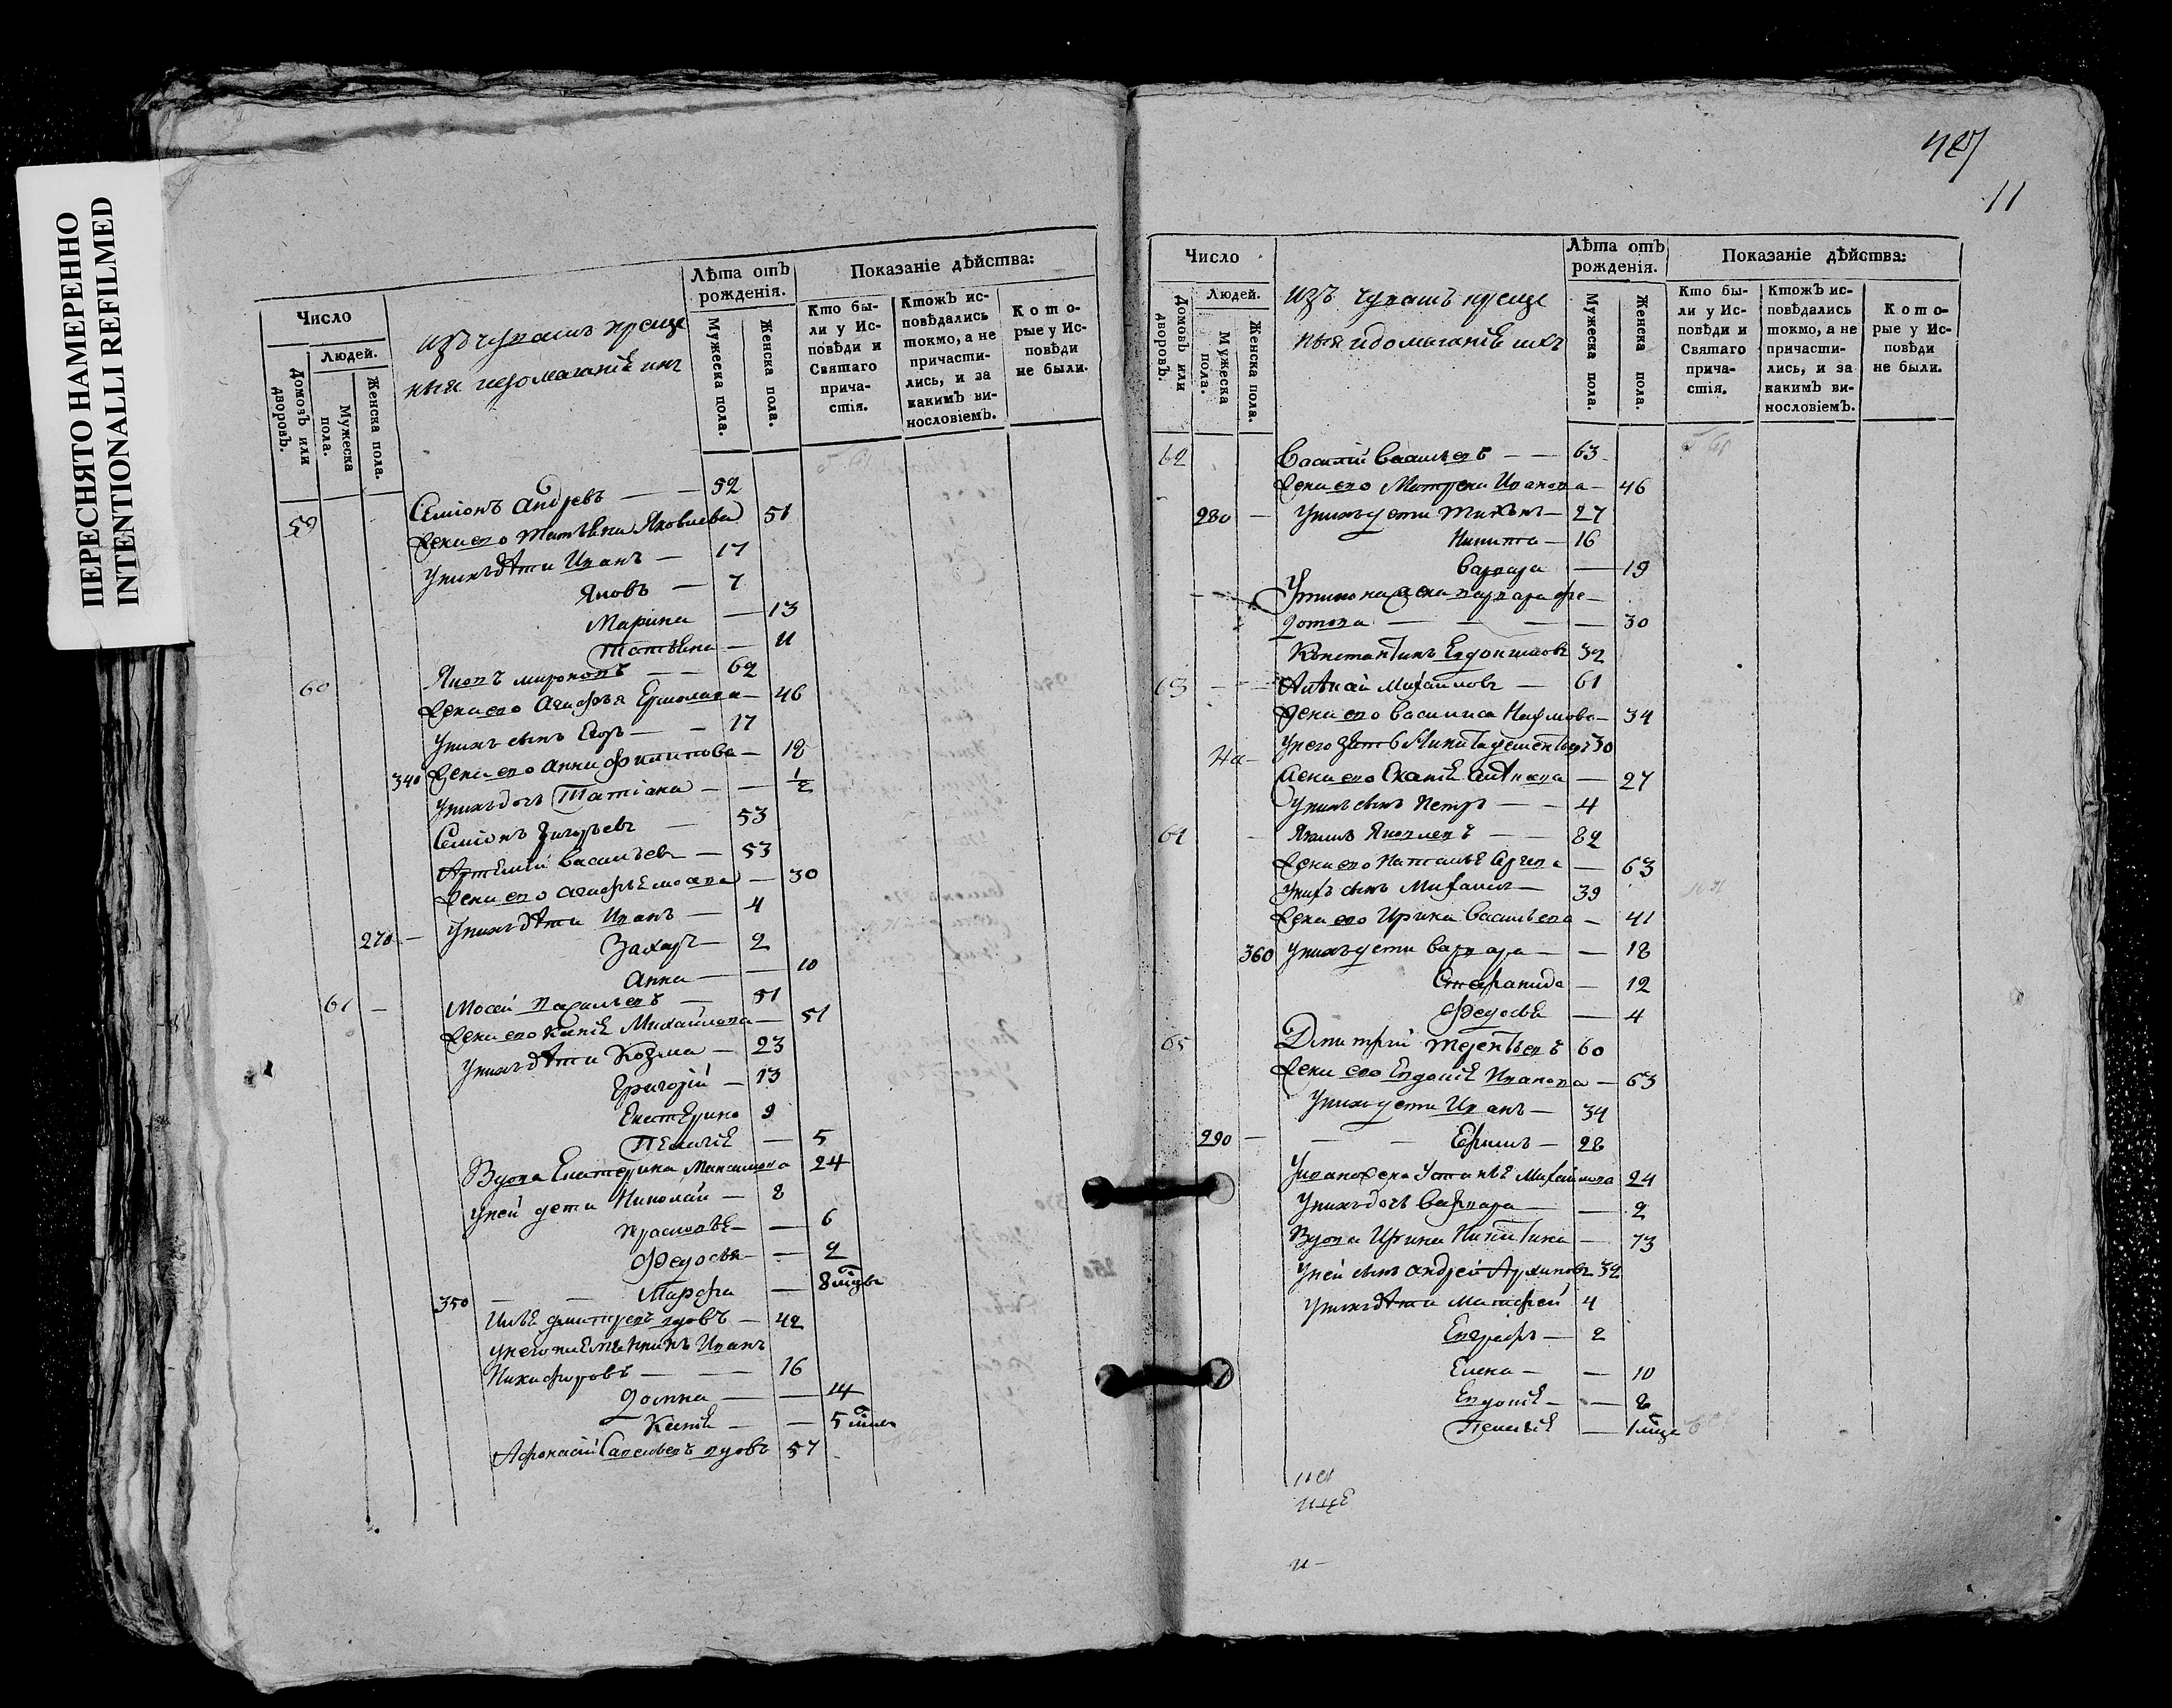 ПЕРЕСНЯТО НАМЕРЕННО
INTENTIONALLI REFILMED
Число
Людей.
Домовъ или дворовъ.
Мужеска пола.
Женска пола.
изъ чувашъ креще
ныя
Лѣта отъ рожденія.
Мужеска пола.
Женска пола.
Показаніе дѣйства:
Кто были у Исповѣди и Святаго причастія.
Ктожъ исповѣдались токмо, а не причастились, и за какимъ винословіемъ.
Которые у Исповѣди не были.
59 Семіонъ Андревъ — 52
Жена его Татьяна Яковлева 51
У нихъ дѣти Иванъ — 17
Яковъ — 7
Марина — 13
Татьяна — 11
60 Яковъ Мироновъ — 62
Жена его Агафья Ермолаева — 46
У нихъ сынъ Егоръ — 17
340 Жена его Анна Филипова — 18
У нихъ дочь Татіана — 1/2
Семіонъ Григорьевъ — 53
Артемій Васильевъ — 53
Жена его 30
270 — У нихъ дѣти Иванъ — 4
Захаръ — 2
Анна — 10
61 — Мосей Васильевъ — 51
Жена его Михайлова — 51
У нихъ дѣти Козма — 23
Григорій — 13
Екатерина 9
Пелагіе — 5
Вдова Екатерина Максимова 24
У ней дети Николай — 8
Прасковья — 6
Федосья — 2
350 — Марфа — 8 мцвъ
Илья Дмитревъ вдовъ — 42
У него племянникъ Иванъ
Никифоровъ — 16
14
5
Афонасій Савельевъ вдовъ 57
427
11
Число
Людей.
Домовъ или дворовъ.
Мужеска пола.
Женска пола.
изъ чувашъ креще
ныя и домашніе ихъ
Лѣта отъ рожденія.
Мужеска пола.
Женска пола.
Показаніе дѣйства:
Кто были у Исповѣди и Святаго причастія.
Ктожъ исповѣдались токмо, а не причастились, и за какимъ винословіемъ.
Которые у Исповѣди не были.
62 Василій Васильевъ — 63
Жена его Матрена Иванова — 46
280 — У нихъ дети 27
Никита — 16
Варвара — 19
жена Варвара Фе—
дотова — 30
Константинъ Евдокимовъ 32
63 — Алѣксѣй Михайловъ — 61
Жена его Василиса Наумова — 34
У него зять Никита 30
Жена его 27
У нихъ сынъ Петръ — 4
64 — Яковлевъ — 82
Жена его Наталья — 63
У нихъ сынъ Михаилъ — 39
Жена его Ирина Васильева — 41
360 У нихъ дети Варвара — 18
12
Федосья — 4
65 Дмитрій Терентьевъ 60
Жена его Евдокіе Иванова — 63
У нихъ дети Иванъ — 34
290 — Ефимъ — 28
У Ивано жена Устинья Михайлова 24
У нихъ дочь Варвара — 2
Вдова Ирина Никитина — 73
У ней сынъ Андрей 32
У нихъ дѣти Матфей 4
Евграфъ — 2
Елена — 10
Евдокіе — 8
Пелагіе — 1 мцъ